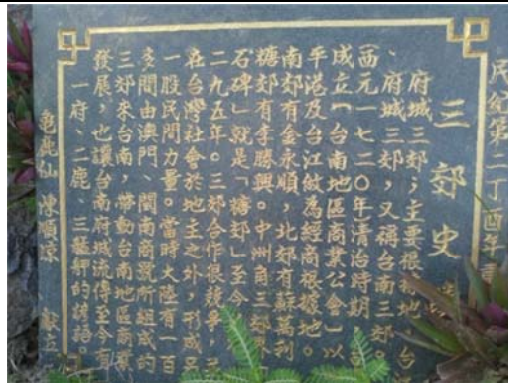 民紀第二丁酉年
三郊史
府城三郊，主要根據地
府城三郊，又稱台南三郊。
西元一七二〇年清治時期
成立「台南地區商業公會」以
平港及台江斂為經商根據地。
南郊有金永順，北郊有蘇萬利
糖郊有李勝興。中州角三郊
石碑」就是「糖郊」至今
二九五年。三郊合作很競爭，
在台灣社會於地主之外，形成另
一股民間力量。當時大陸有一百
多間由澳門、閩南商號所組成的
三郊來台南，帶動台南地區商業
發展，也讓台南府城流傳至今有
一府、二鹿、三艋舺的諺語
陳順涼